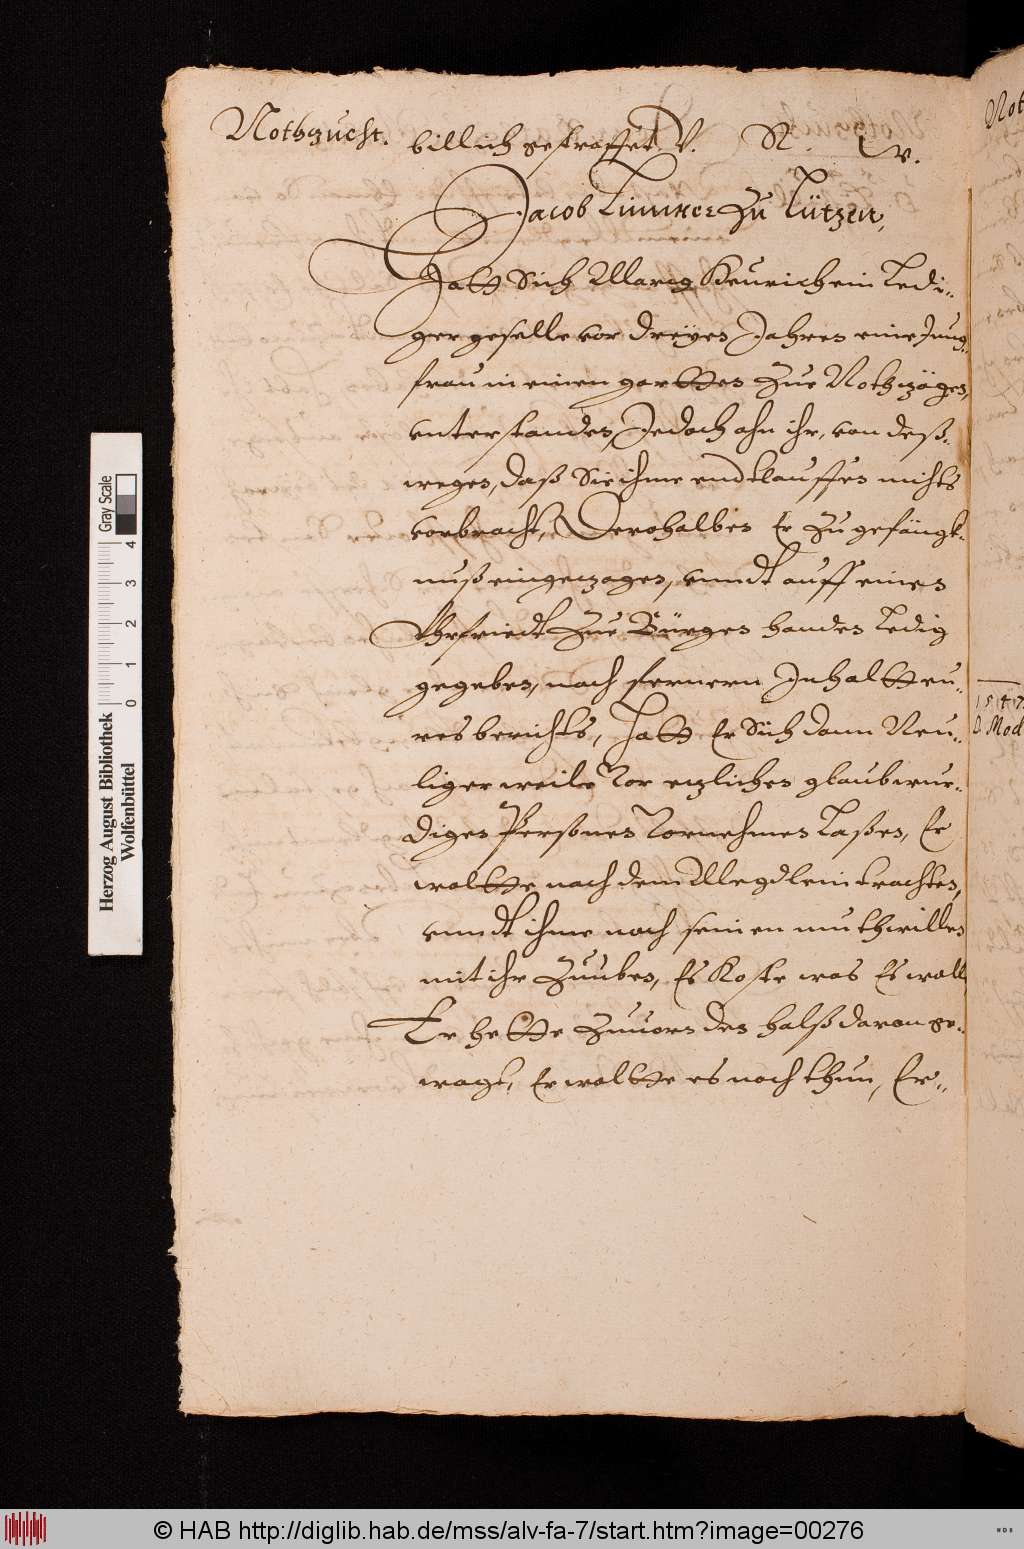 Nothzucht. billich gestraffet. V. R. W.
Jacob Limmer Zu Lützen,
Hatt Sich Marcg Heinrich ein Ledi-
ger geselle vor dreÿen Jahren eine Jung-
frau in einen gartten Zue Nothzögen,
unterstanden, Jedoch ahn ihr, von deß-
wegen, daß Sie ihme endtlauffen nichts
vorbracht, Derohalben Er Zu gefängk-
nuß eingezogen, unndt auff einen
Uhrfriedt Zue Bürgen handen ledig
gegeben, nach fernern Inhaltt eu-
res berichts, Hatt Er Sich dann Neu-
liger weile Vor ezlichen glaubwur-
digen Persohnen Vornehmen Laßen, Er
woltte nach dem Megdlein trachten,
unndt ihme nach seinen muthwillen
mit ihr Zuuben, Es Koste was Es woll
Er hette Zuuorn den halß daran ge-
wagt, Er woltte es noch thun, Er-
Not
1547
D. Mod
Herzog August Bibliothek
Wolfenbüttel
0 1 2 3 4
Gray Scale
© HAB http://diglib.hab.de/mss/alv-fa-7/start.htm?image=00276